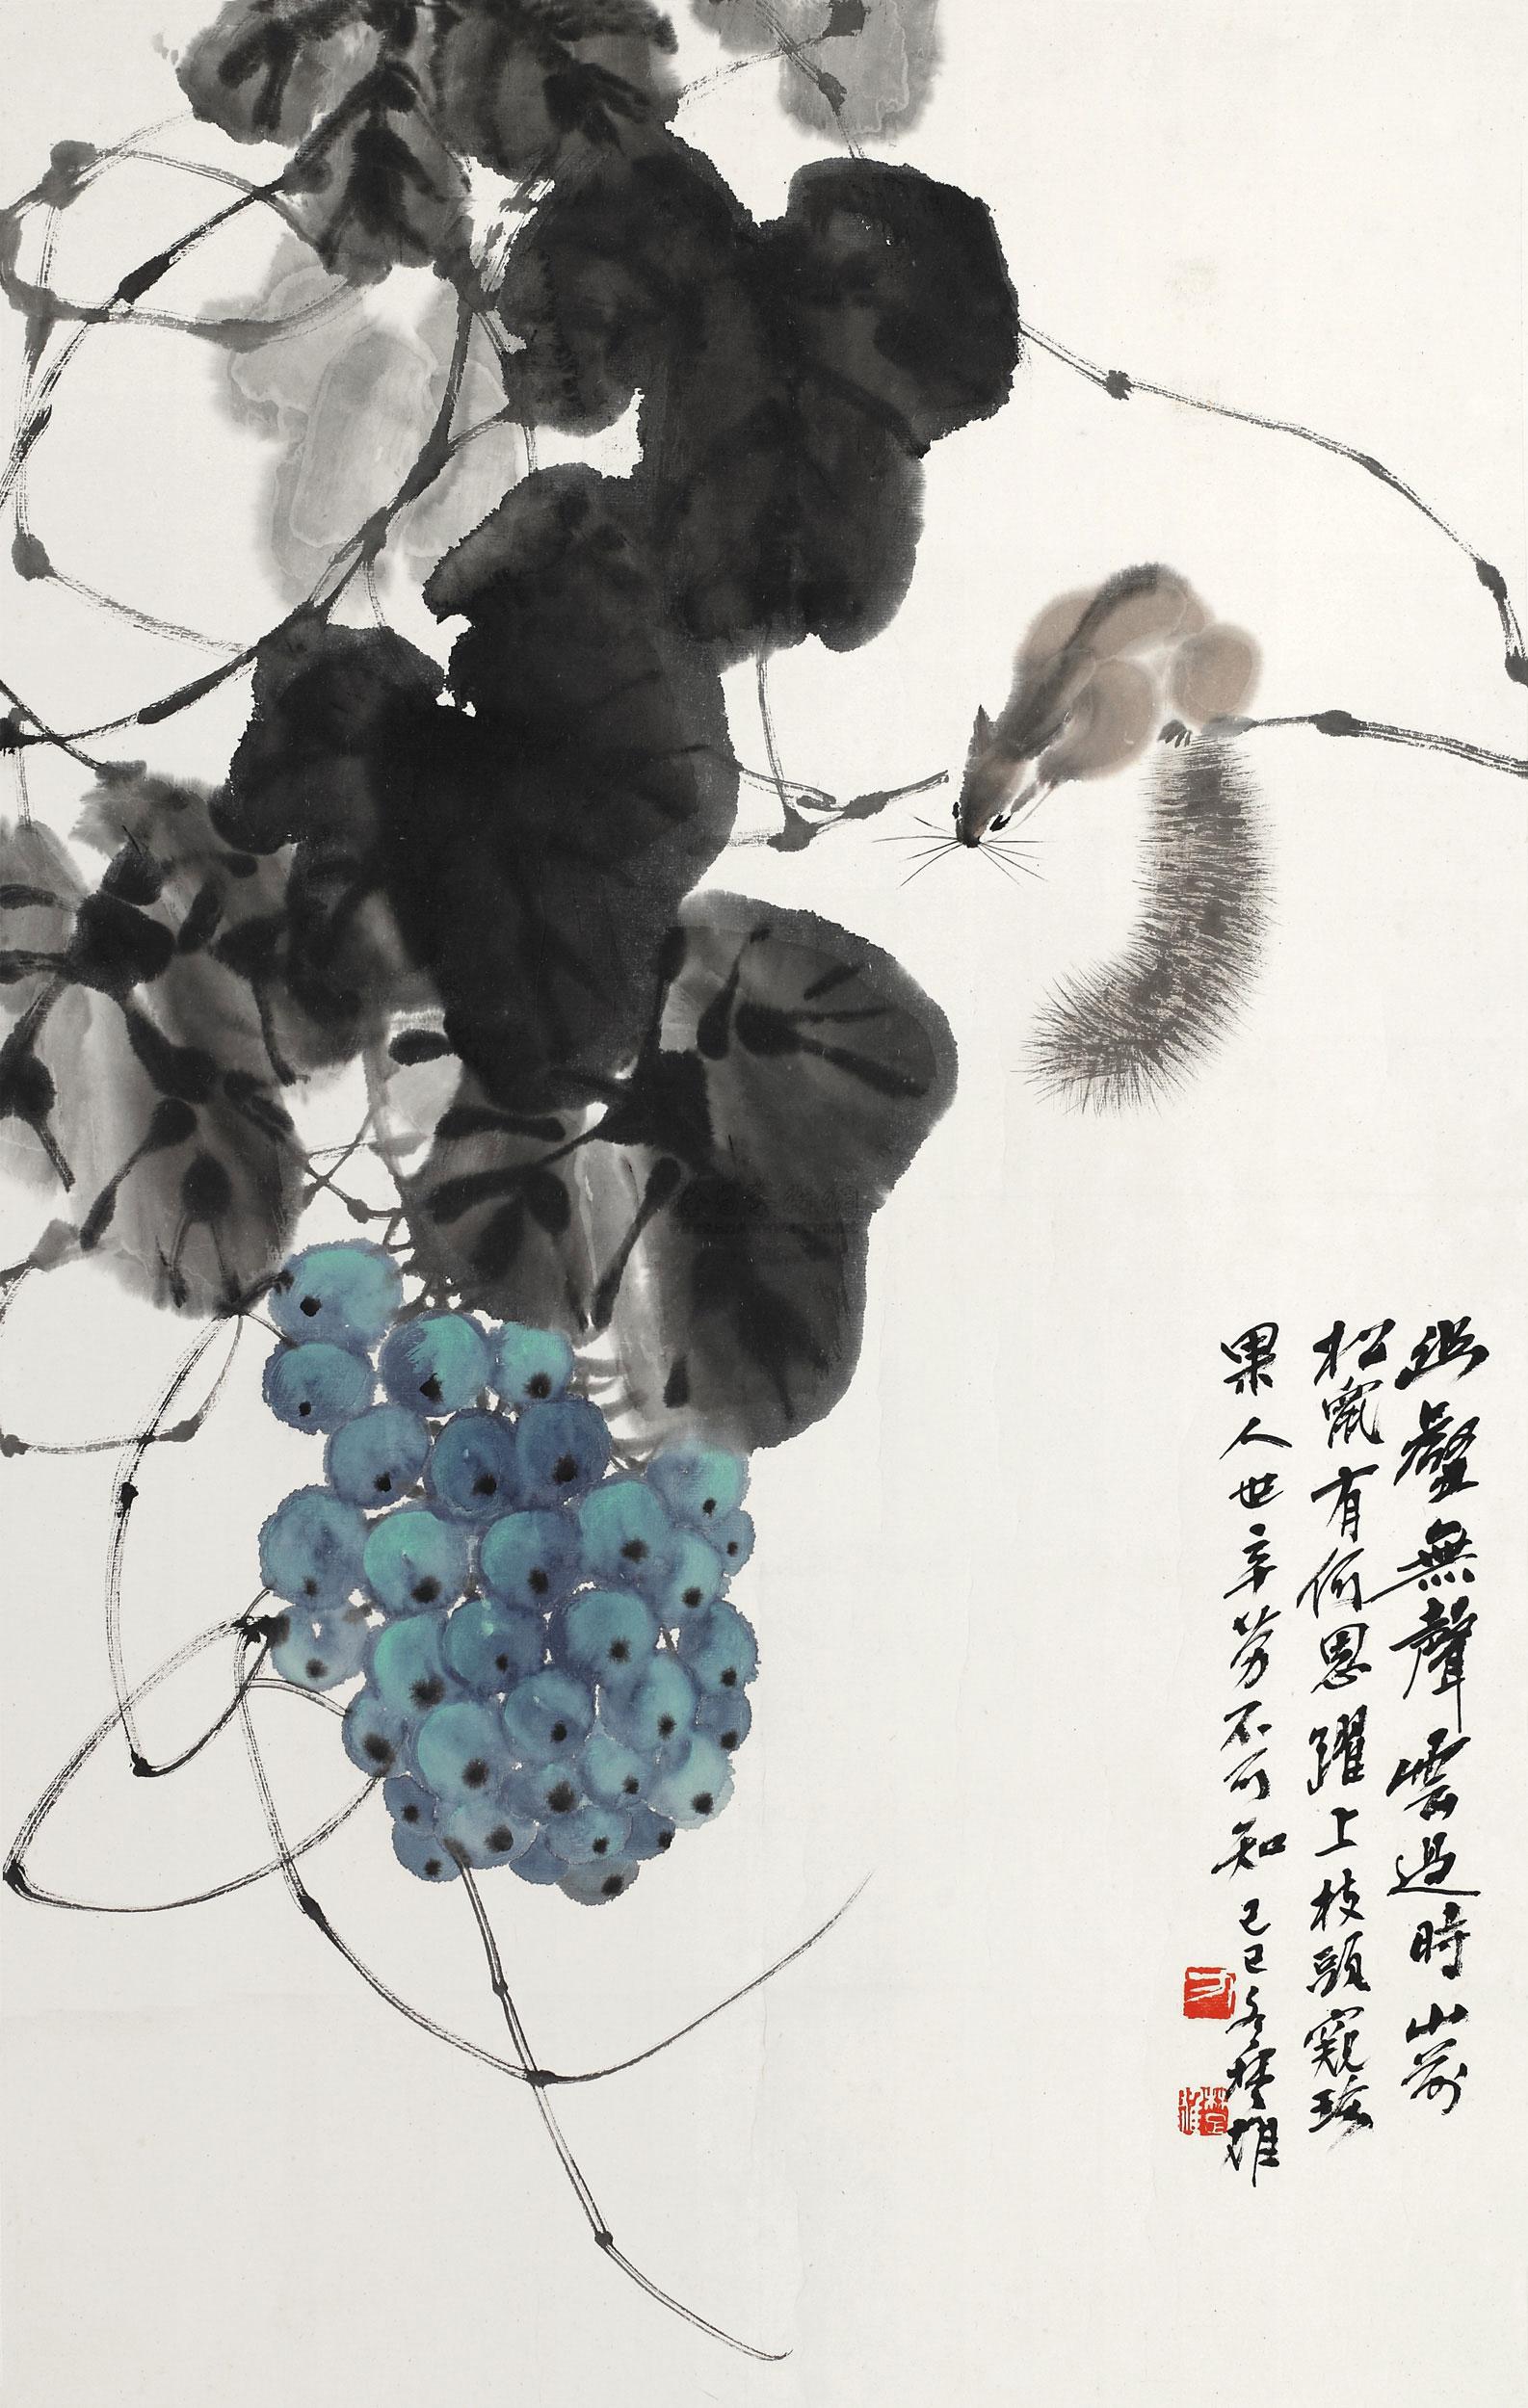 幽壑無聲雲過時山前
松鼠有何思躍上枝頭窺珍
果人世辛勞不可知己巳冬楚雄